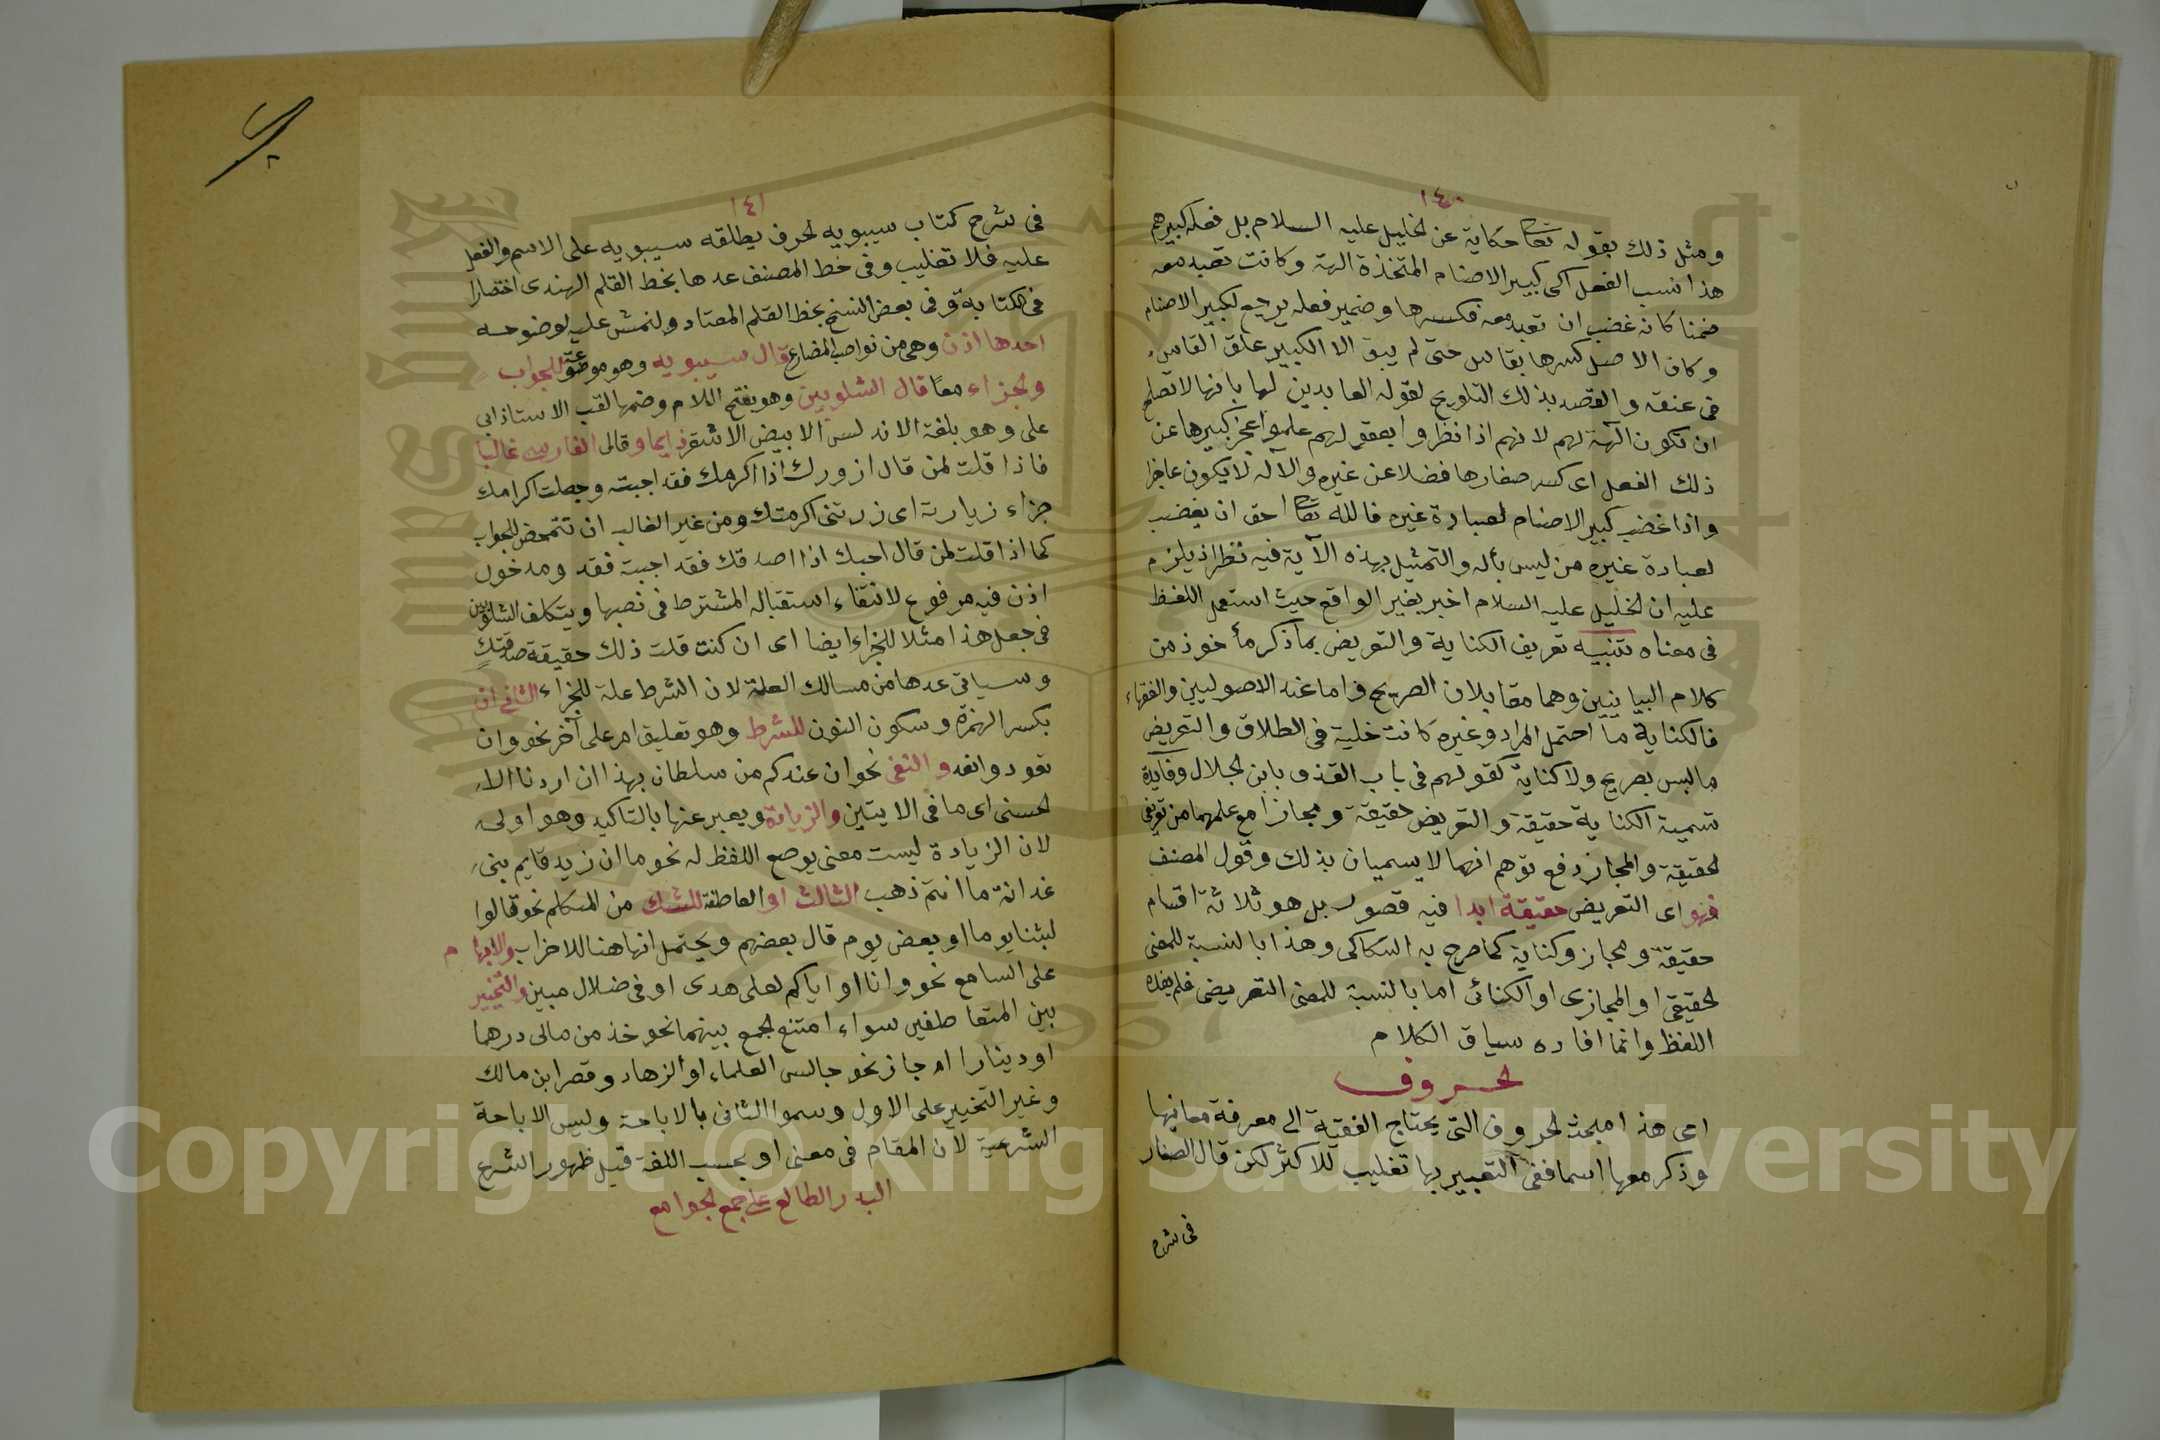 ١٤٠
ومثل ذلك بقوله تعا حكاية عن الخليل عليه السلام بل فعله كبيرهم
هذا نسب الفعل الى كبير الاصنام المتخذة الهة وكانت تعبد معه
ضمنا كانه غضب ان تعبد معه فكسرها وضمير فعله يرجع لكبير الاصنام
وكان الاصل كسرها بفاس حتى لم يبق الا الكبير علق الفاس
في عنقه والقصد بذلك التلويح لقوله العابدين لها بانها لا تصلح
ان تكون الهة لهم لانهم اذا نظروا بعقولهم علموا عجز كبيرها عن
ذلك الفعل اى كسر صغارها فضلا عن غيره والآله لا يكون عاجزا
واذا غضب كبير الاصنام لعبادة غيره فالله تعا احق ان يغضب
لعبادة غيره من ليس بأله والتمثيل بهذه الآية فيه نظر اذ يلزم
عليه ان الخليل عليه السلام اخبر بغير الواقع حيث استعمل اللفظ
في معناه تنبيه تعريف الكناية والتعريض بما ذكر مأخوذ من
كلام البيانيين وهما مقابلان الصريح واما عند الاصوليين والفقهاء
فالكناية ما احتمل المراد وغيره كانت خلية في الطلاق والتعريض
ما ليس بصريح ولا كناية كقولهم في باب القذف يا ابن الحلال وفايدة
تسمية الكناية حقيقة والتعريض حقيقة ومجازا مع علمهما من تعريفي
الحقيقة والمجاز دفع توهم انهما لا يسميان بذلك وقول المصنف
فهو اى التعريض حقيقة ابدا فيه قصور بل هو ثلاثة اقسام
حقيقة ومجاز وكناية كما صرح به السكاكى وهذا بالنسبة للمعنى
الحقيقى او المجازى او الكنائى اما بالنسبة للمعنى التعريضى فلم يفده
اللفظ وانما افاده سياق الكلام
الحروف
اى هذا مبحث الحروف التى يحتاج الفقيه الى معرفة معانيها
وذكر معها اسما ففى التعبير بها تغليب للاكثر لكن قال الصفار
فى شرح
١٤١
فى شرح كتاب سيبويه الحرف يطلقه سيبويه على الاسم والفعل
عليه فلا تغليب وفى خط المصنف عدها بخط القلم الهندى اختصارا
فى الكتابة وفى بعض النسخ بخط القلم المعتاد ولنمش عليه لوضوحه
احدها اذن وهى من نواصب المضارع قال سيبويه وهو موضوع للجواب
والجزاء معا قال الشلوبين وهو بفتح اللام وضمها لقب الاستاذ ابى
على وهو بلغة الاندلس الابيض الاشقر دايما وقال الفارسى غالبا
فاذا قلت لمن قال ازورك اذا اكرمك فقد اجبته وجعلت اكرامك
جزاء زيارته اى زرتنى اكرمتك ومن غير الغالب ان تتمحض للجواب
كما اذا قلت لمن قال احبك اذا اصدقك فقد اجبته فقد ومدخول
اذن فيه مرفوع لانتفاء استقباله المشترط فى نصبها ويتكلف الشلوبين
فى جعل هذا مثلا للجزاء ايضا اى ان كنت قلت ذلك حقيقة صدقتك
وسياتى عدها من مسالك العلة لان الشرط علة للجزاء الثانى ان
بكسر الهمزة وسكون النون للشرط وهو تعليق امر على آخر نحو وان
تعودوا نعد والنفى نحو ان عندكم من سلطان بهذا ان اردنا الا
الحسنى اى ما فى الايتين والزيادة ويعبر عنها بالتاكيد وهو اولى
لان الزيادة ليست معنى يوضع اللفظ له نحو ما ان زيد قايم بنى
غدانة ما انتم ذهب الثالث او العاطفة للشك من المتكلم نحو قالوا
لبثنا يوما او بعض يوم قال بعضهم ويحتمل انها هنا للاضراب والابهام
على السامع نحو وانا او اياكم لعلى هدى او فى ضلال مبين والتخيير
بين المتعاطفين سواء امتنع الجمع بينهما نحو خذ من مالى درهما
او دينارا ام جاز نحو جالس العلماء او الزهاد وقصر ابن مالك
وغير التخيير على الاول وسموا الثانى بالاباحة وليس الاباحة
الشرعية لان المقام فى معنى او بحسب اللغة قبل ظهور الشرع
البدر الطالع على جمع الجوامع
Copyright © King Saud University
1957